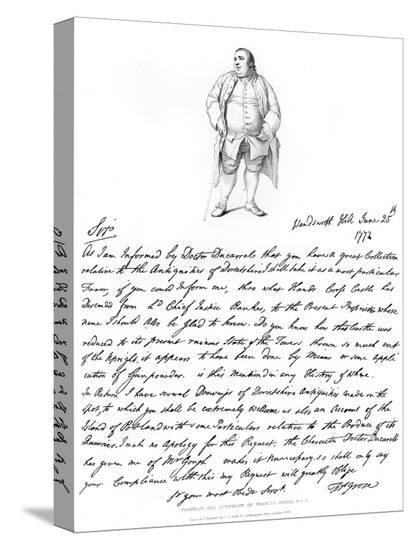 Wandsworth Hill June 25th
1772
Sir
As I am Informed by Doctor Ducarrel that you have a Great Collection
relative to the Antiquities of Dorsetshire I shall take it as a most particular
Favor, if you could Inform me, thro what Hands Corfe Castle has
Descended from Ld Chief Justice Bankes, to the Present Proprietor whose
name I should also be glad to know. Do you know how this Castle was
reduced to its present ruinous State, the Towers shown so much out
of the Upright, it appears to have been done by Mines or some appli
cation of Gunpowder. is this mentioned in any History of
In Return I have several Drawings of Dorsetshire Antiquities made on the
Spot, to which you shall be extremely Wellcome as also an Account of the
Island of Portland with some Particulars relative to the Produce of its
Quarries. I make no Apology for this Request. the Character Doctor Ducarrell
has given me of Mr makes it Unnecessary, so shall only say
your Compliance with this my Request will greatly Oblige
Sr your most Obedt Servt.
F Grose
PORTRAIT AND AUTOGRAPH OF FRANCIS GROSE, F.S.A.